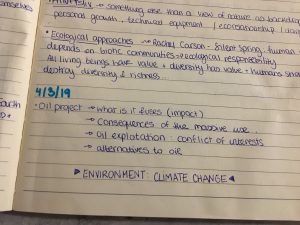 something else than a view of nature as backdrop
personal growth, technical equipment /
• Ecological approaches → Rachel Carson - Silent Spring: human
depends on biotic communities → ecological responsibility
All living beings have value + diversity has value + humans
destroy diversity & richness...
4/3/19
• Oil project → what is it / uses (impact)
→ Consequences of the massive use
→ Oil exploitation: conflict of interests
→ alternatives to oil
▶ ENVIRONMENT: CLIMATE CHANGE ◀